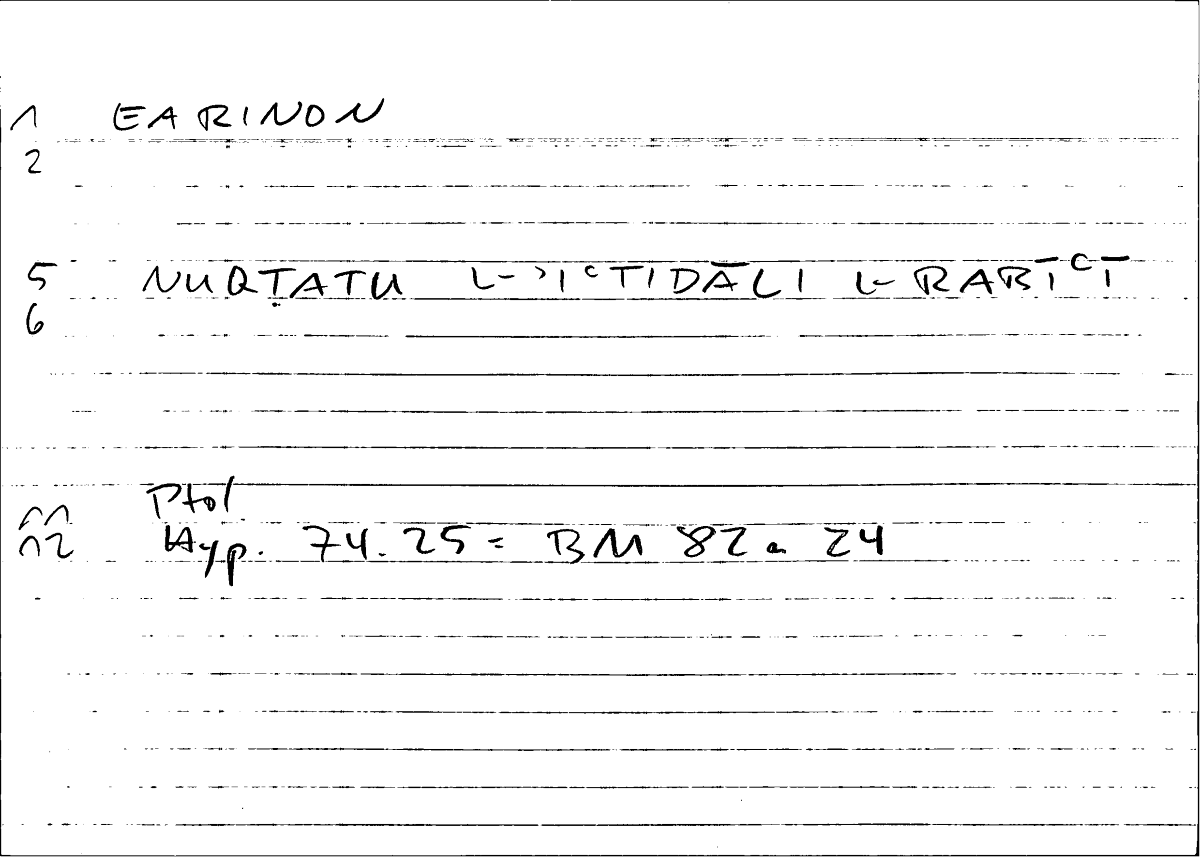 1 EARINON
2
5 NUQṬATU L-ʾIʿTIDĀLI L-RABĪʿĪ
6
11 Ptol
12 Hyp. 74.25 = BM 82a 24